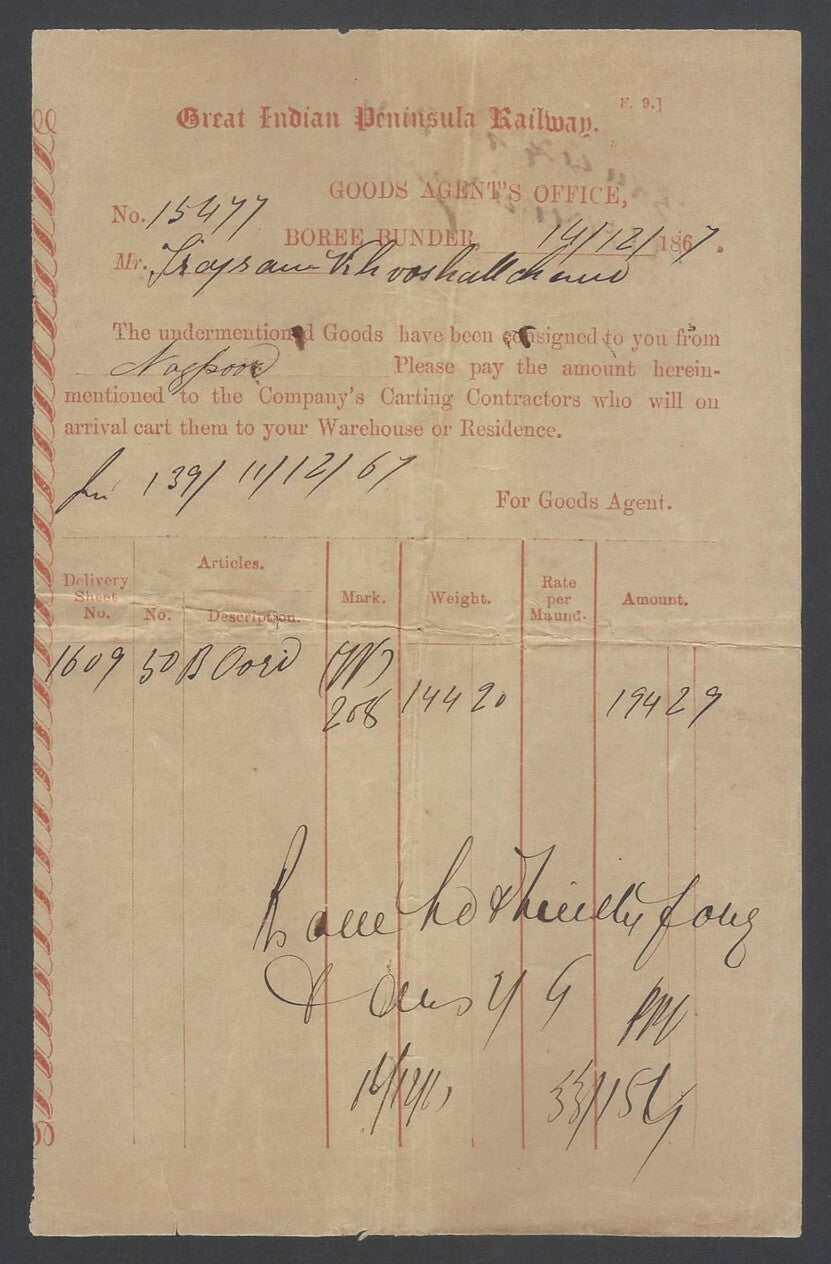 F. 9.]
Great Indian Peninsula Railway.
GOODS AGENT'S OFFICE,
No. 15477
BOREE BUNDER 14/12/1867.
Mr. Khooshallchund
The undermentioned Goods have been consigned to you from
Nagpoor Please pay the amount herein-
mentioned to the Company's Carting Contractors who will on
arrival cart them to your Warehouse or Residence.
139/ 11/12/67
For Goods Agent.
Delivery Sheet No. Articles. No. Description. Mark. Weight. Rate per Maund. Amount.
1609 50 B
208 144 20 194 2 9
four